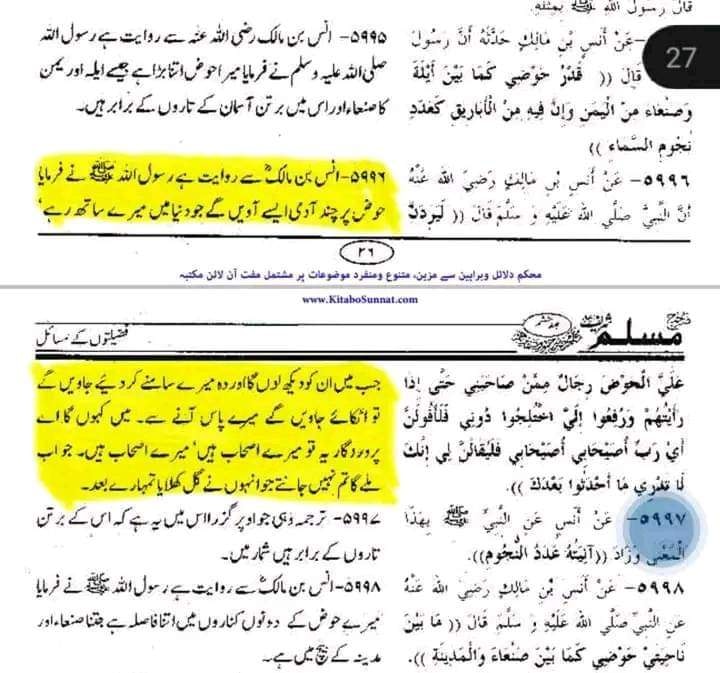 قال رسول الله ﷺ بمثله.
۵۹۹۵- انس بن مالک رضی اللہ عنہ سے روایت ہے رسول اللہ
صلی اللہ علیہ وسلم نے فرمایا میرا حوض اتنا بڑا ہے جیسے ایلہ اور یمن
کا صنعاء اور اس میں برتن آسمان کے تاروں کے برابر ہیں۔
-عَنْ أَنَسِ بْنِ مَالِكٍ حَدَّثَهُ أَنَّ رَسُولَ
قَالَ (( قَدْرُ حَوْضِي كَمَا بَيْنَ أَيْلَةَ
وَصَنْعَاءَ مِنْ الْيَمَنِ وَإِنَّ فِيهِ مِنْ الْأَبَارِيقِ كَعَدَدِ
نُجُومِ السَّمَاءِ ))
27
۵۹۹۶- انس بن مالکؓ سے روایت ہے رسول اللہ ﷺ نے فرمایا
حوض پر چند آدمی ایسے آویں گے جو دنیا میں میرے ساتھ رہے‘
۵۹۹۶- عَنْ أَنَسِ بْنِ مَالِكٍ رَضِيَ اللهُ عَنْهُ
أَنَّ النَّبِيَّ صَلَّى اللهُ عَلَيْهِ وَ سَلَّمَ قَالَ (( لَيَرِدَنَّ
۲۶
محکم دلائل وبراہین سے مزین، متنوع ومنفرد موضوعات پر مشتمل مفت آن لائن مکتبہ
www.KitaboSunnat.com
مسلم
فضیلتوں کے مسائل
جب میں ان کو دیکھ لوں گا اور وہ میرے سامنے کر دیئے جاویں گے
تو اٹکائے جاویں گے میرے پاس آنے سے۔ میں کہوں گا اے
پروردگار یہ تو میرے اصحاب ہیں‘ میرے اصحاب ہیں۔ جواب
ملے گا تم نہیں جانتے جو انہوں نے گل کھلایا تمہارے بعد۔
عَلَيَّ الْحَوْضَ رِجَالٌ مِمَّنْ صَاحَبَنِي حَتَّى إِذَا
رَأَيْتُهُمْ وَرُفِعُوا إِلَيَّ اخْتُلِجُوا دُونِي فَلَأَقُولَنَّ
أَيْ رَبِّ أُصَيْحَابِي أُصَيْحَابِي فَلَيُقَالَنَّ لِي إِنَّكَ
لَا تَدْرِي مَا أَحْدَثُوا بَعْدَكَ )).
۵۹۹۷- ترجمہ وہی جو اوپر گزرا اس میں یہ ہے کہ اس کے برتن
تاروں کے برابر ہیں شمار میں۔
۵۹۹۷- عَنْ أَنَسٍ عَنِ النَّبِيِّ ﷺ بِهَذَا
الْمَعْنَى وَزَادَ ((آنِيَتُهُ عَدَدُ النُّجُومِ)).
۵۹۹۸- انس بن مالکؓ سے روایت ہے رسول اللہ ﷺ نے فرمایا
میرے حوض کے دونوں کناروں میں اتنا فاصلہ ہے جتنا صنعاء اور
مدینہ کے بیچ میں ہے۔
۵۹۹۸- عَنْ أَنَسِ بْنِ مَالِكٍ رَضِيَ اللهُ عَنْهُ
عَنِ النَّبِيِّ صَلَّى اللهُ عَلَيْهِ وَ سَلَّمَ قَالَ (( مَا بَيْنَ
نَاحِيَتَيْ حَوْضِي كَمَا بَيْنَ صَنْعَاءَ وَالْمَدِينَةِ )).